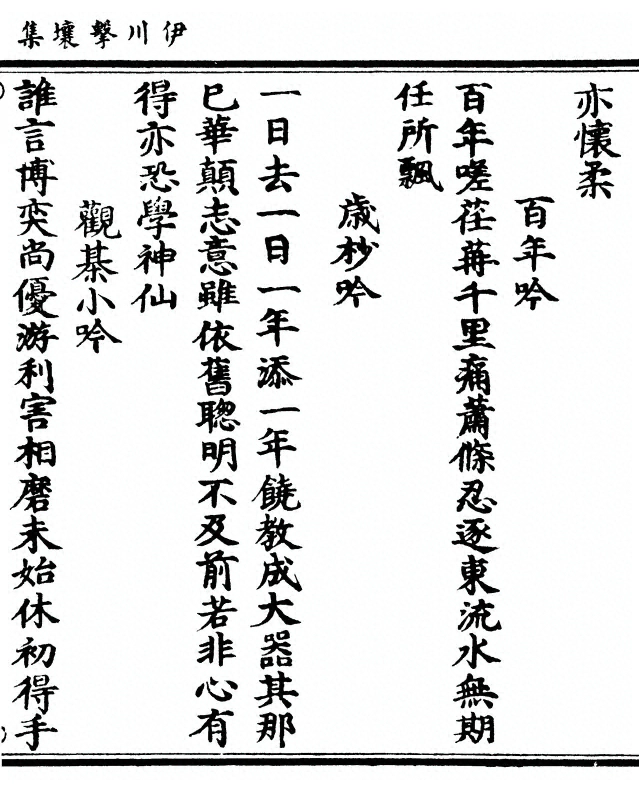 伊川擊壤集
亦懷柔
百年吟
百年嗟荏苒千里痛蕭條忍逐東流水無期
任所飄
歲杪吟
一日去一日一年添一年饒教成大器其那
已華顛志意雖依舊聰明不及前若非心有
得亦恐學神仙
觀棊小吟
誰言博奕尚優游利害相磨未始休初得手